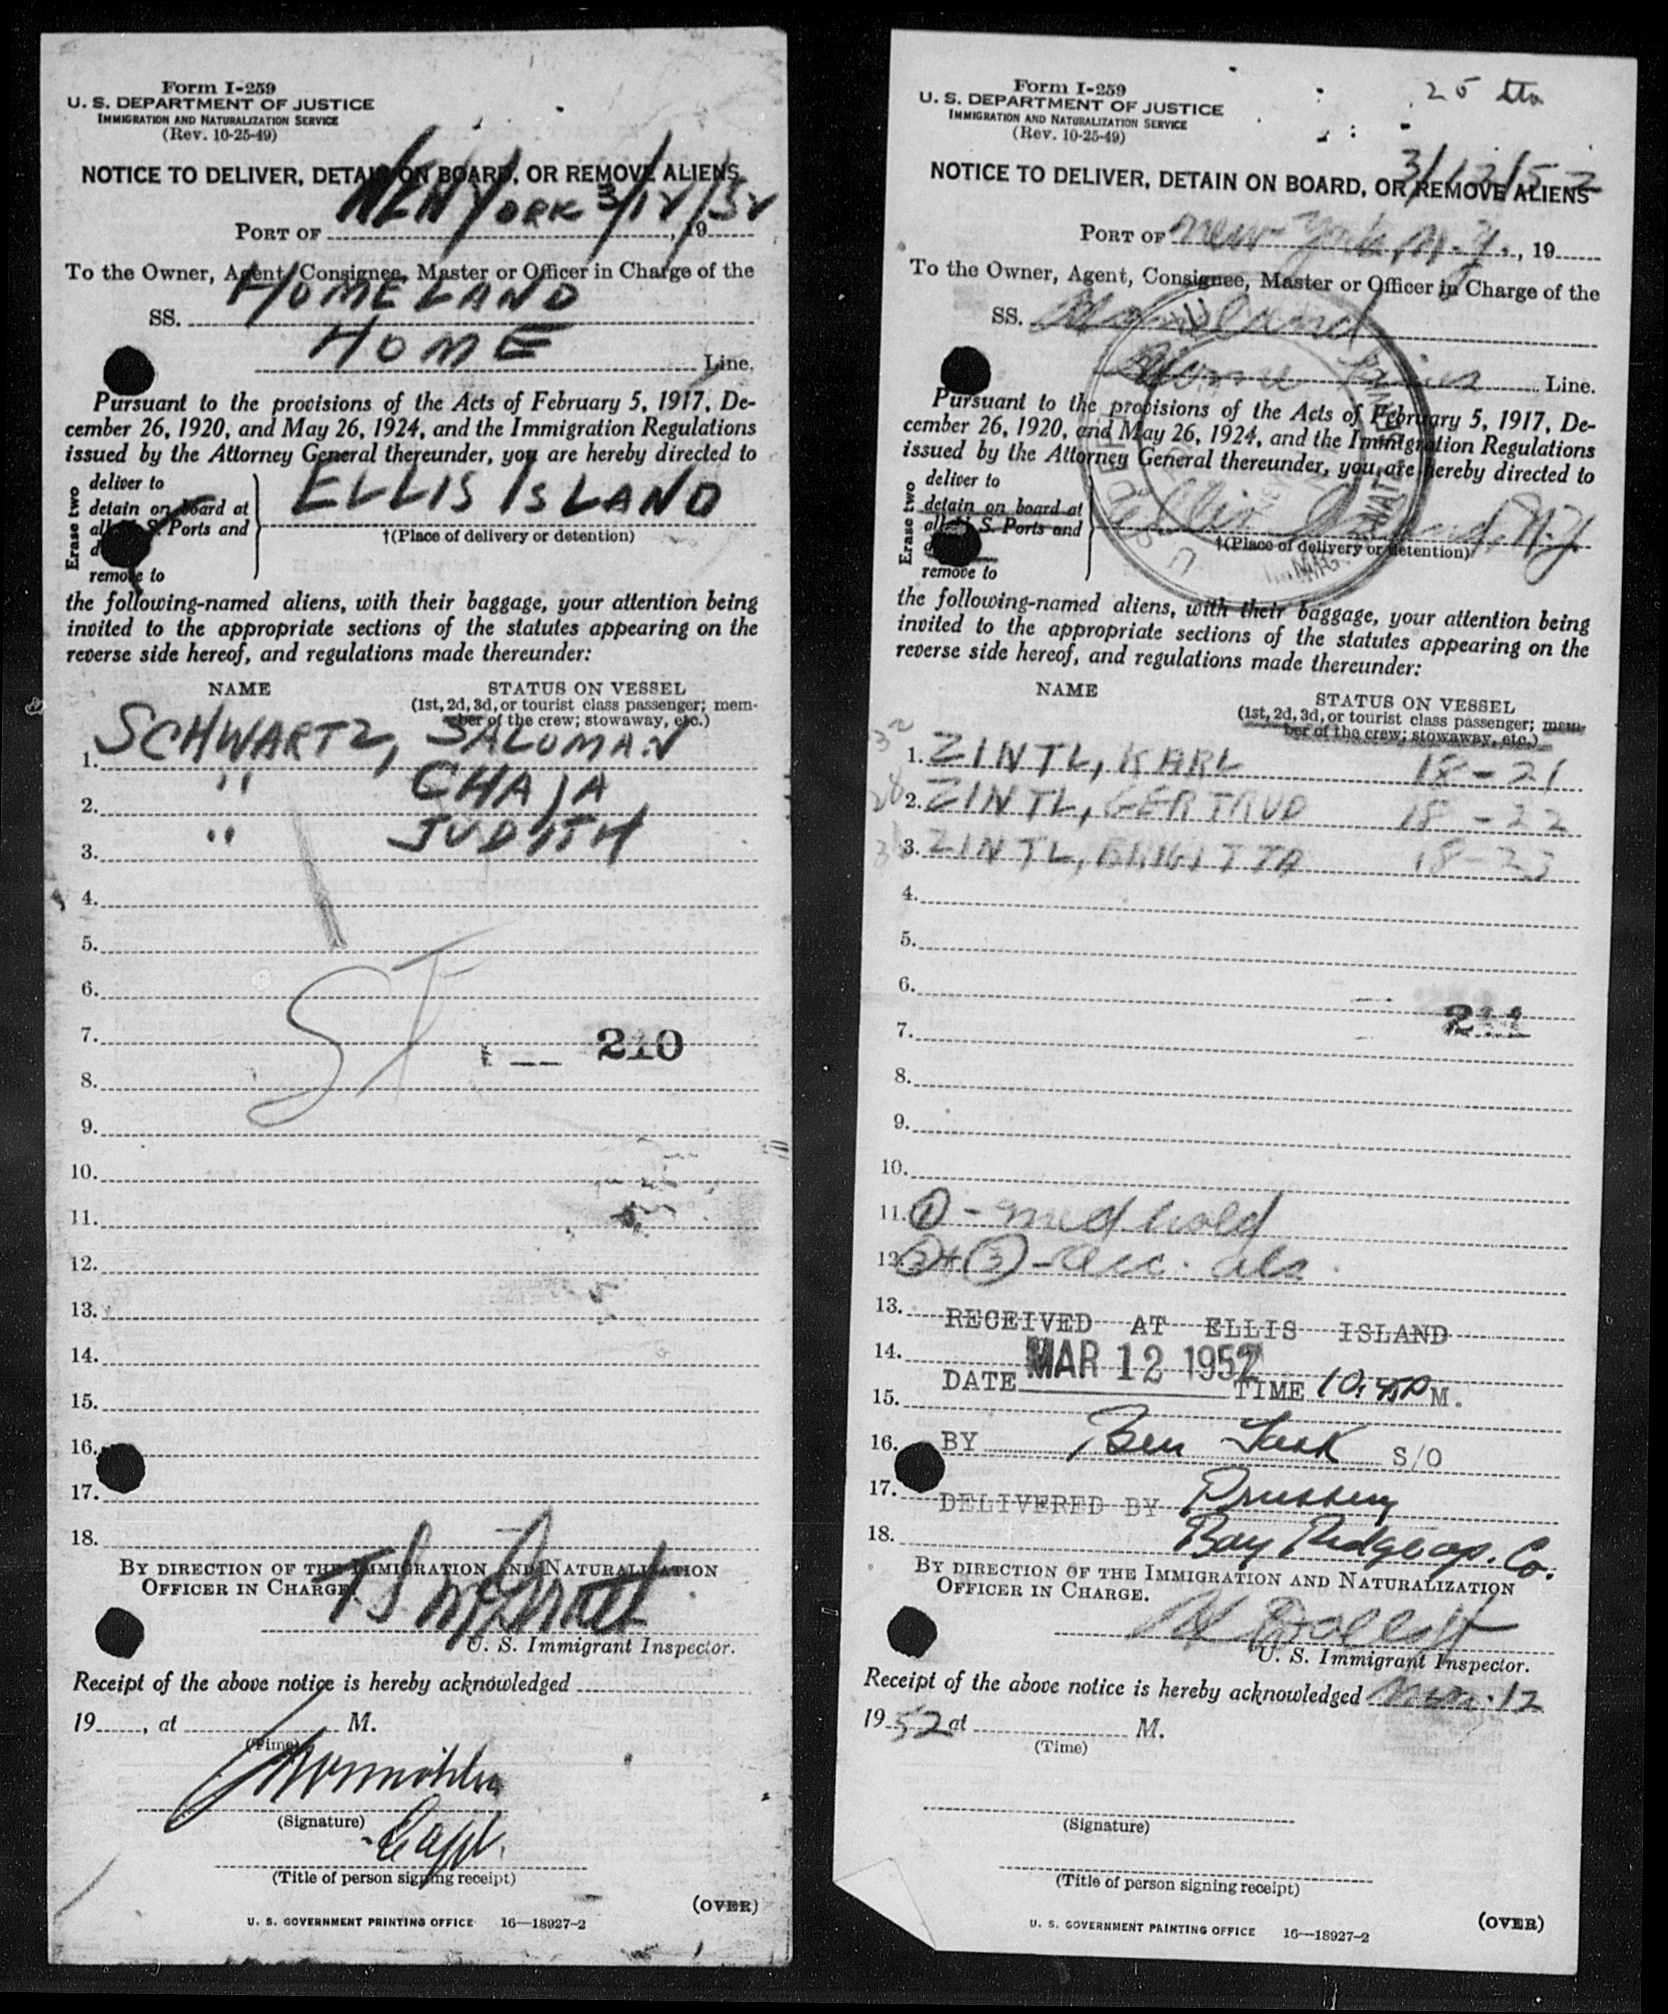 Form I-259
U. S. DEPARTMENT OF JUSTICE
IMMIGRATION AND NATURALIZATION SERVICE
(Rev. 10-25-49)
NOTICE TO DELIVER, DETAIN ON BOARD, OR REMOVE ALIENS
PORT OF NEW YORK 3/12/52, 19
To the Owner, Agent, Consignee, Master or Officer in Charge of the
SS. HOMELAND
HOME Line.
Pursuant to the provisions of the Acts of February 5, 1917, De-
cember 26, 1920, and May 26, 1924, and the Immigration Regulations
issued by the Attorney General thereunder, you are hereby directed to
Erase two
deliver to
detain on board at
all U. S. Ports and
remove to
ELLIS ISLAND
†(Place of delivery or detention)
the following-named aliens, with their baggage, your attention being
invited to the appropriate sections of the statutes appearing on the
reverse side hereof, and regulations made thereunder:
NAME STATUS ON VESSEL
(1st, 2d, 3d, or tourist class passenger; mem-
ber of the crew; stowaway, etc.)
1. SCHWARTZ, SALOMAN
2. " CHAJA
3. " JUDITH
4.
5.
6.
7. 210
8.
9.
10.
11.
12.
13.
14.
15.
16.
17.
18.
BY DIRECTION OF THE IMMIGRATION AND NATURALIZATION
OFFICER IN CHARGE.
U. S. Immigrant Inspector.
Receipt of the above notice is hereby acknowledged
19, at M.
(Time)
(Signature)
Capt.
(Title of person signing receipt)
(OVER)
U. S. GOVERNMENT PRINTING OFFICE 16—18927-2
25
Form I-259
U. S. DEPARTMENT OF JUSTICE
IMMIGRATION AND NATURALIZATION SERVICE
(Rev. 10-25-49)
3/12/52
NOTICE TO DELIVER, DETAIN ON BOARD, OR REMOVE ALIENS
PORT OF New York, N.Y., 19
To the Owner, Agent, Consignee, Master or Officer in Charge of the
SS. Homeland
Home Lines Line.
Pursuant to the provisions of the Acts of February 5, 1917, De-
cember 26, 1920, and May 26, 1924, and the Immigration Regulations
issued by the Attorney General thereunder, you are hereby directed to
Erase two
deliver to
detain on board at
all U. S. Ports and
remove to
Ellis Island, N.Y.
†(Place of delivery or detention)
the following-named aliens, with their baggage, your attention being
invited to the appropriate sections of the statutes appearing on the
reverse side hereof, and regulations made thereunder:
NAME STATUS ON VESSEL
(1st, 2d, 3d, or tourist class passenger; mem-
ber of the crew; stowaway, etc.)
1. ZINTL, KARL 18-21
2. ZINTL, GERTRUD 18-22
3. ZINTL, BRIGITTA 18-23
4.
5.
6.
7. 211
8.
9.
10.
11. ① - med hold
12. ② + ③ - acc. als.
13. RECEIVED AT ELLIS ISLAND
14. MAR 12 1952
15. DATE TIME 10:45 P M.
16. BY Ben S/O
17. DELIVERED BY
18. Bay Ridge op. Co.
BY DIRECTION OF THE IMMIGRATION AND NATURALIZATION
OFFICER IN CHARGE.
U. S. Immigrant Inspector.
Receipt of the above notice is hereby acknowledged Mar. 12
1952 at M.
(Time)
(Signature)
(Title of person signing receipt)
(OVER)
U. S. GOVERNMENT PRINTING OFFICE 16—18927-2